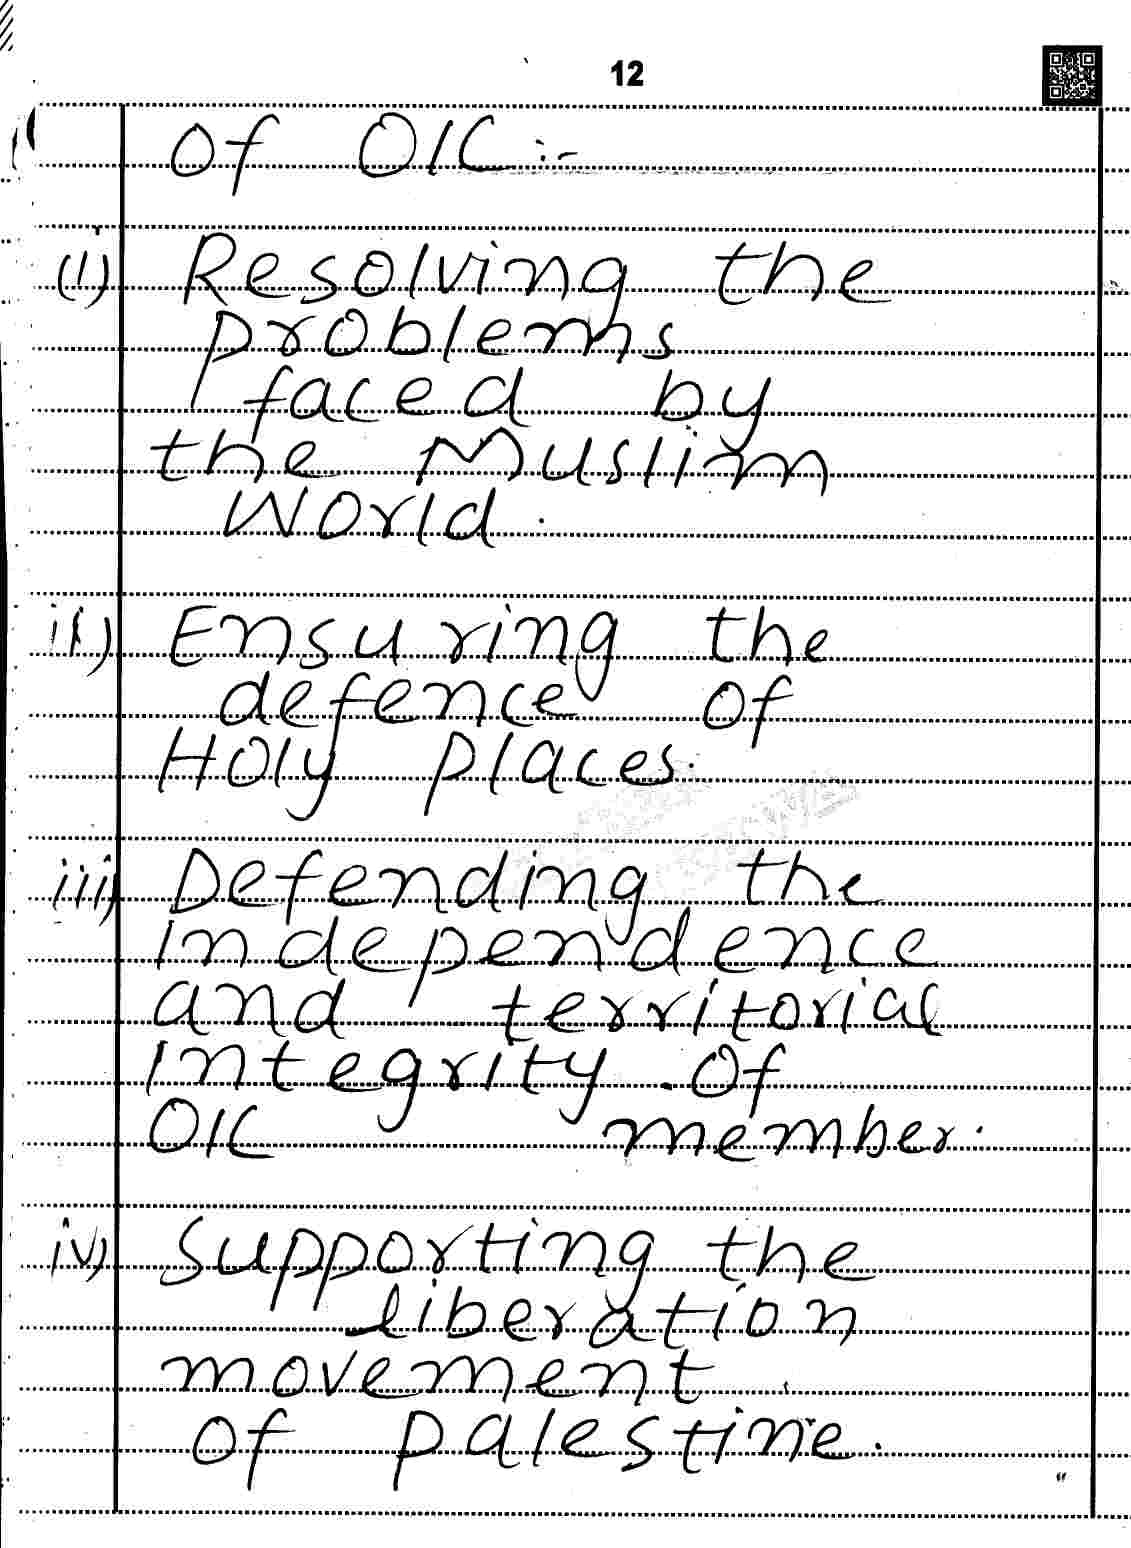 12
of OIC :-
(i) Resolving the
problems
faced by
the Muslim
World.
ii) Ensuring the
defence of
Holy places.
iii) Defending the
independence
and territorial
integrity of
OIC member.
iv) Supporting the
liberation
movement
of palestine.